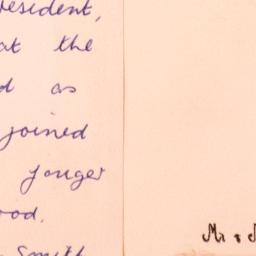 resident,
at the
d as
joined
jonger
ood.
Smith
Mr &